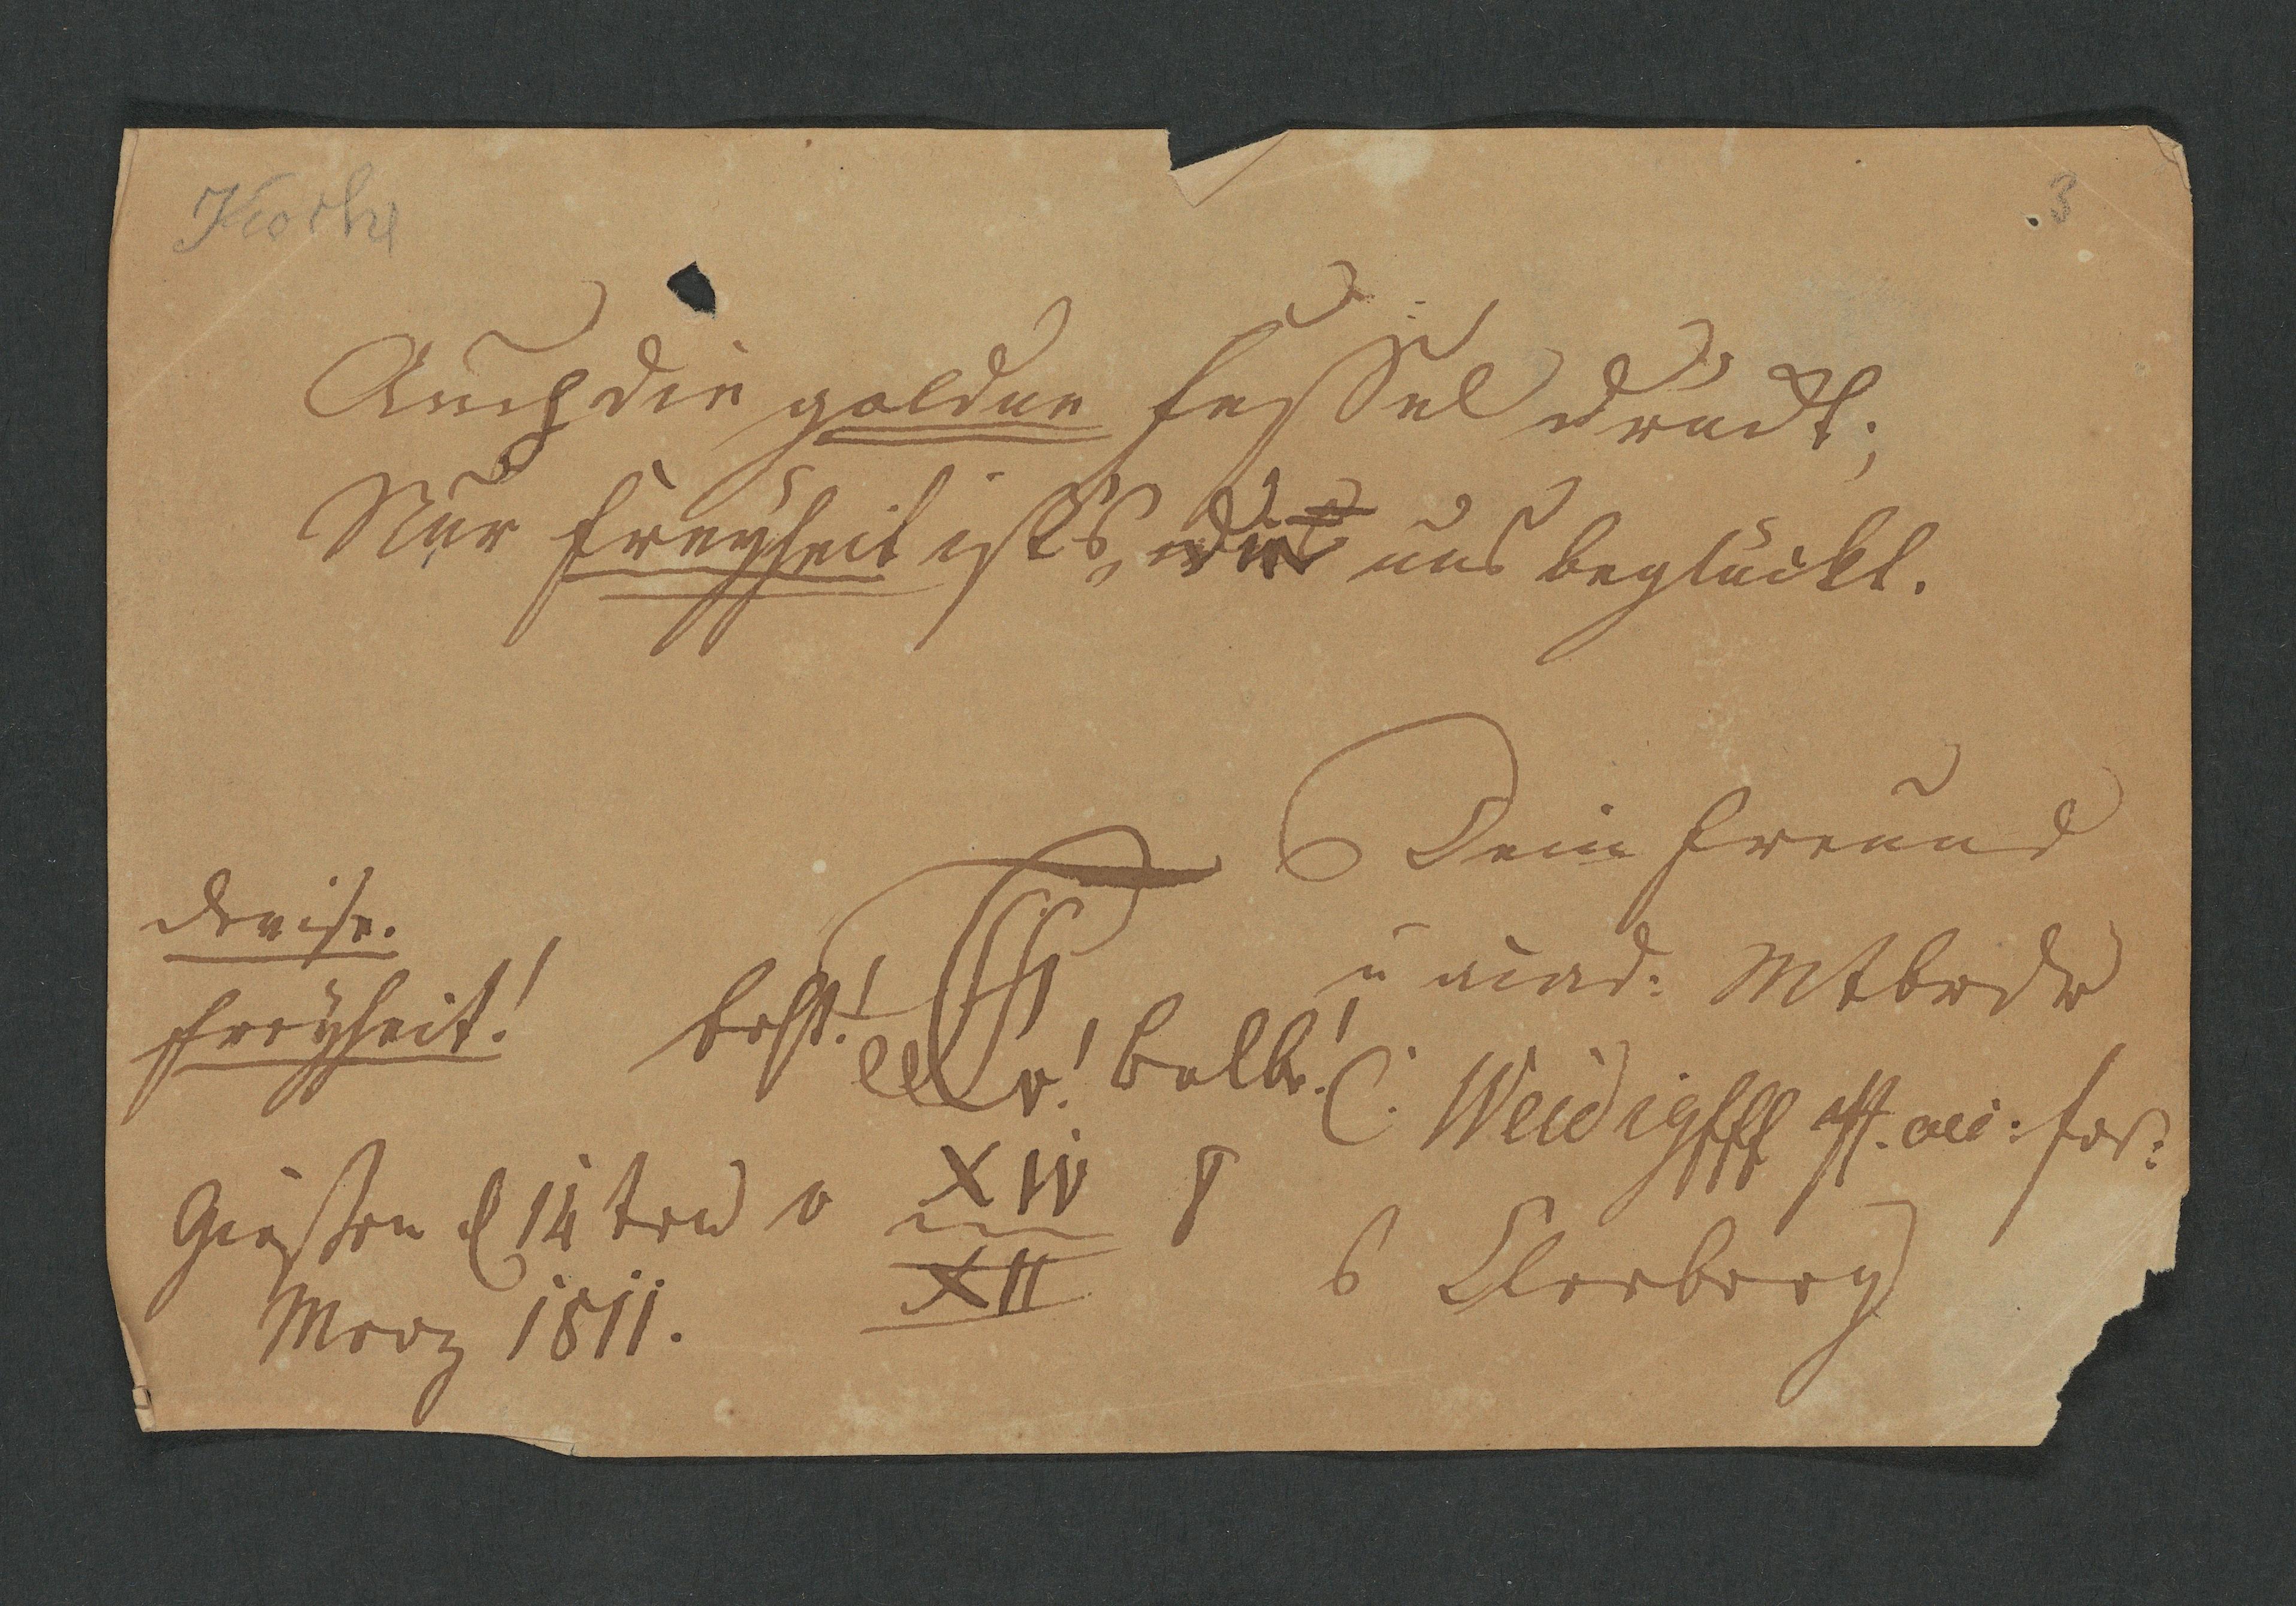 3
Auch die goldne Fessel drückt;
Nur Freyheit ists, die uns beglückt.
Dein Freund
u acad: Mtbrdr
C. Weidig
Devise.
Freyheit!
Giessen d 14ten
Merz 1811.
XIV
XII
Cleeberg